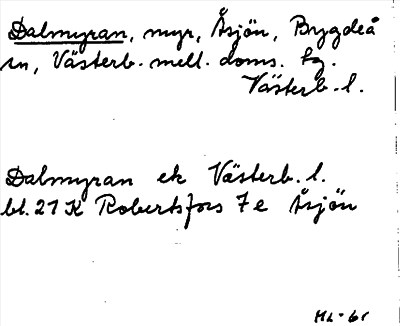 Dalmyran, myr, Åsjön, Bygdeå
sn, Västerb. mell. doms. tg.
Västerb. l.
Dalmyran ek Västerb. l.
bl. 21 K Robertsfors 7 e Åsjön
HL-61